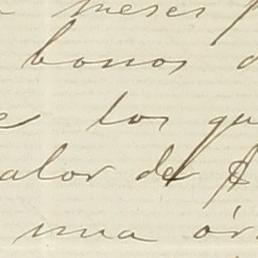 meses
bonos
los qu
alor de $
una ór